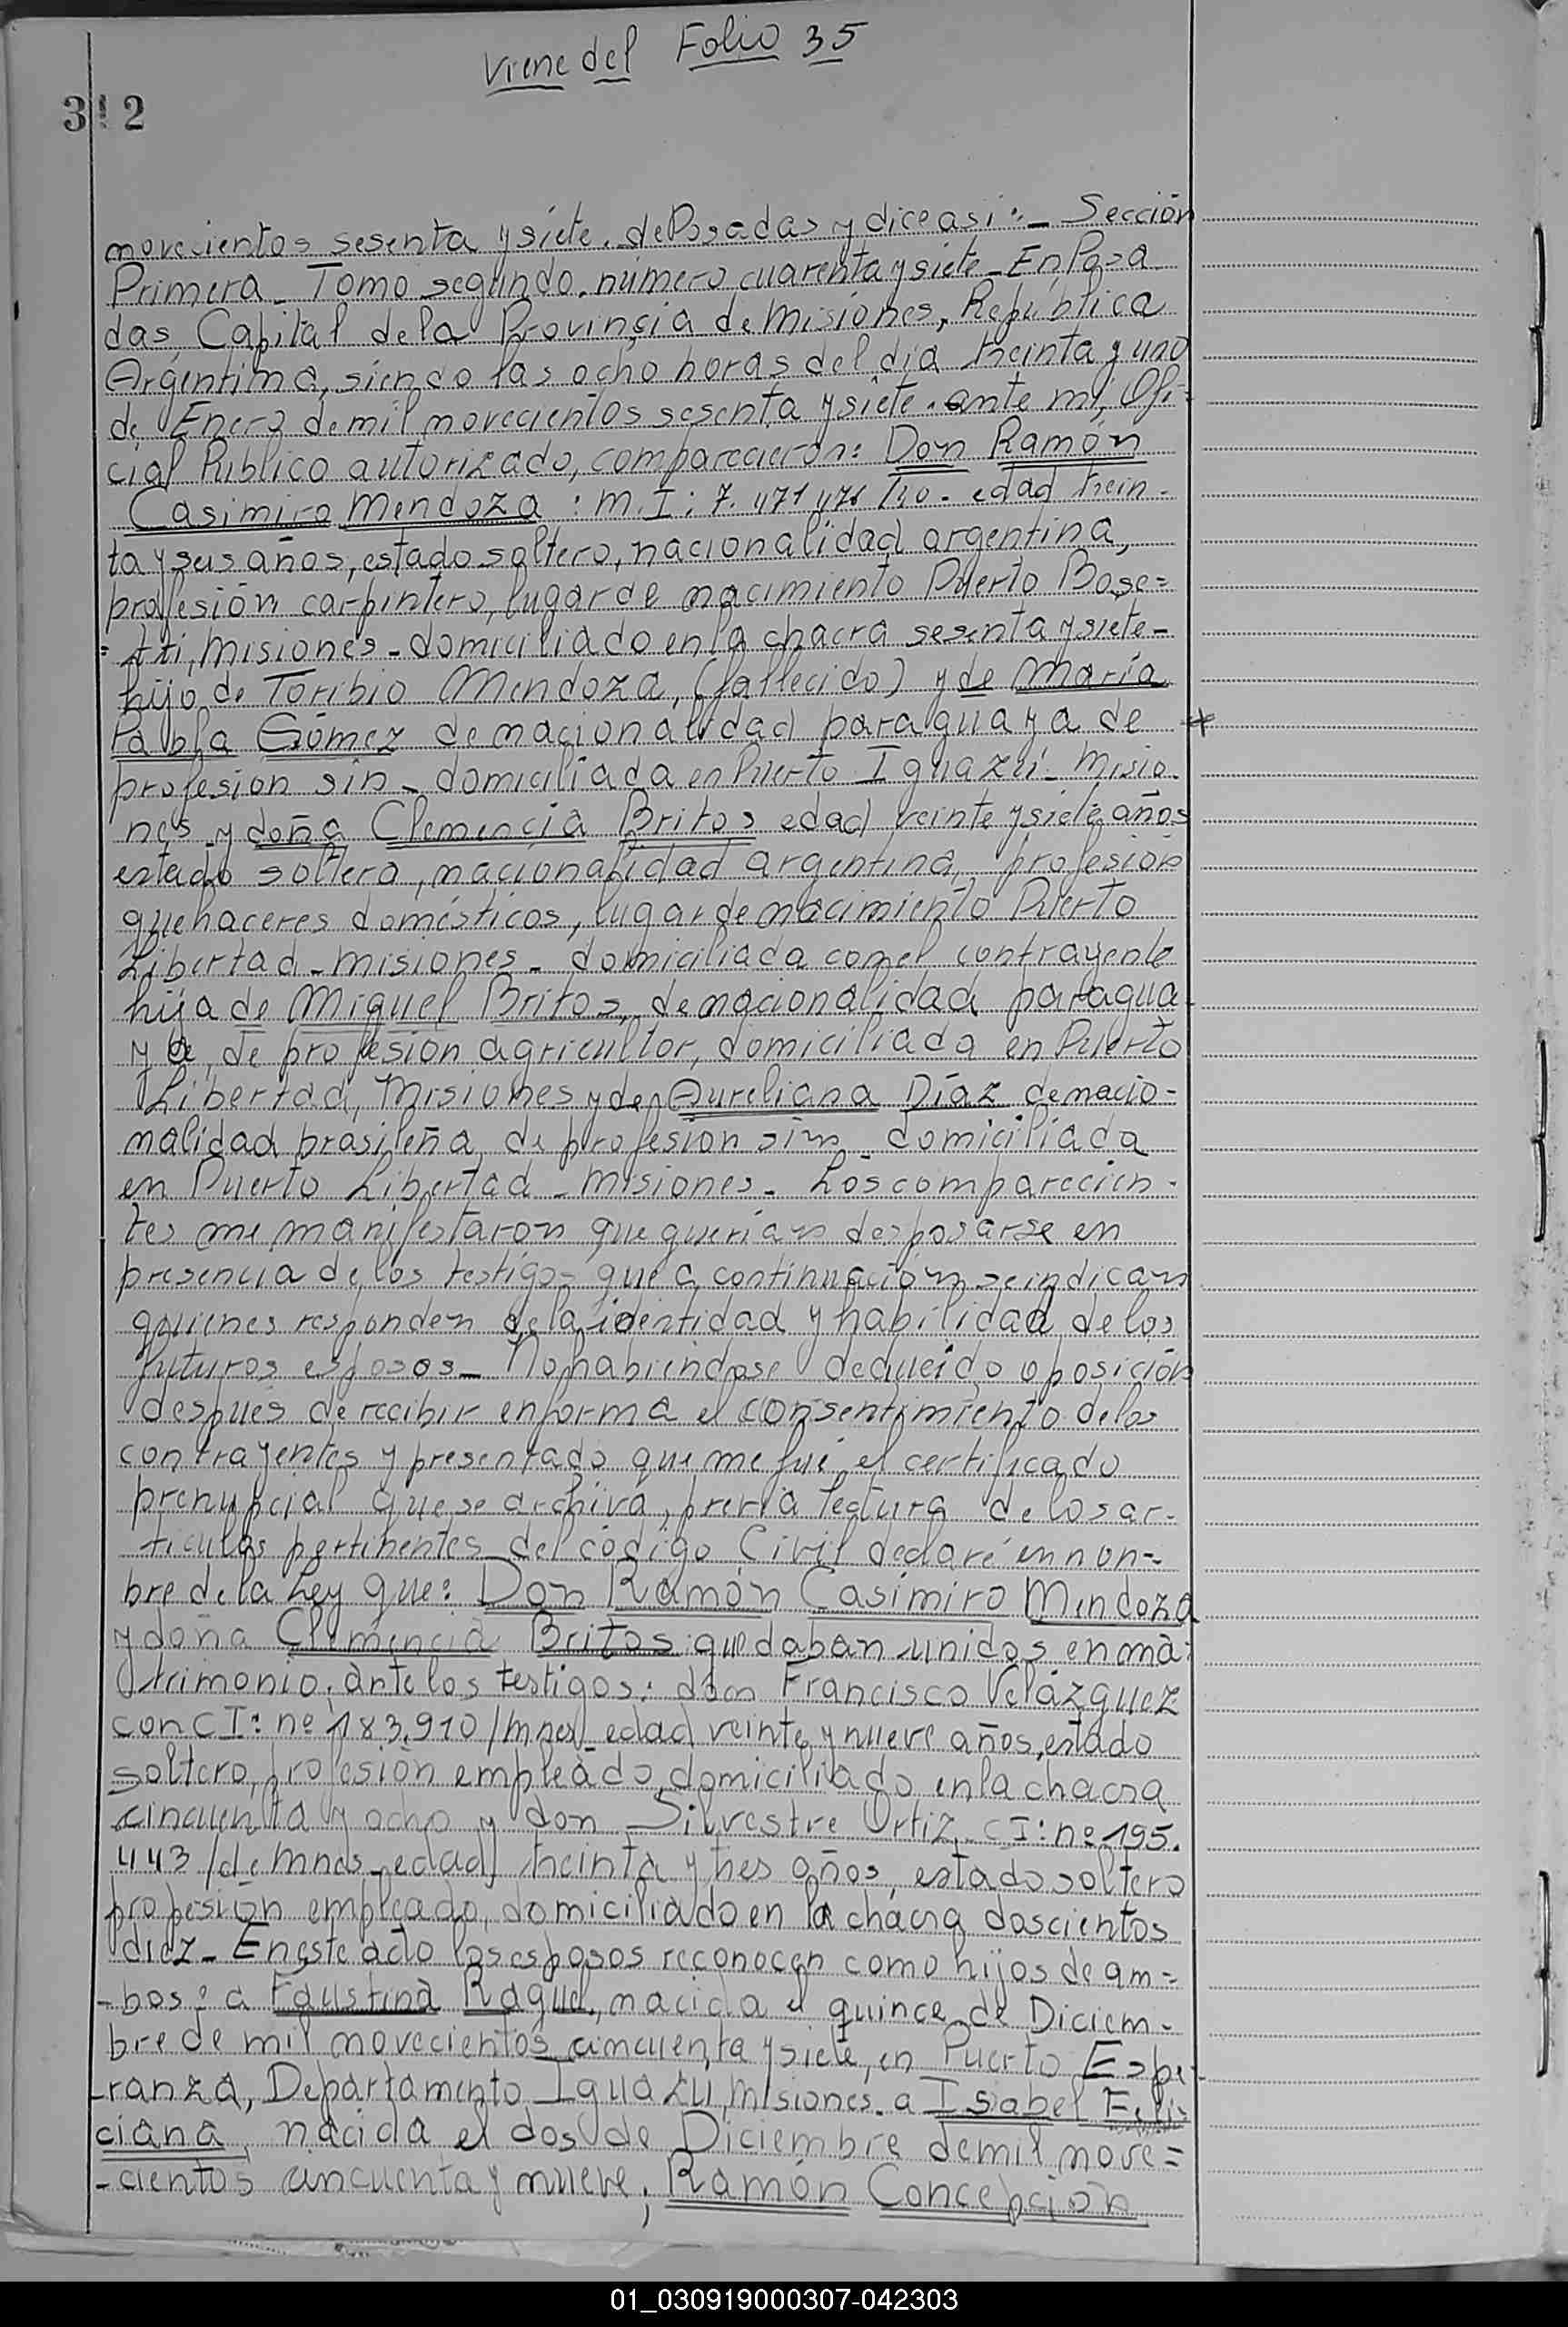 Viene del Folio 35
312
novecientos sesenta y siete. de Posadas y dice asi:- Sección
Primera - Tomo segundo. número cuarenta y siete - En Posa
das, Capital de la Provincia de Misiones, República
Argentina, siendo las ocho horas del día treinta y uno
de Enero de mil novecientos sesenta y siete. ante mi, Ofi-
cial Público autorizado, comparecieron: Don Ramón
Casimiro Mendoza : M.I: 7. 471 edad trein-
ta y seis años, estado soltero, nacionalidad argentina,
profesión carpintero, lugar de nacimiento Puerto Bose=
=tti, Misiones - domiciliado en la chacra sesenta y siete -
hijo de Toribio Mendoza, (fallecido) y de María
Pabla Gómez de nacionalidad paraguaya de +
profesion sin - domiciliada en Puerto Iguazú - Misio-
nes y doña Clemencia Britos edad veinte y siete años
estado soltera, nacionalidad argentina, profesion
quehaceres domésticos, lugar de nacimiento Puerto
Libertad - Misiones - domiciliada con el contrayente
hija de Miguel Britos, de nacionalidad paragua-
ya, de profesión agricultor, domiciliado en Puerto
Libertad, Misiones y de Aureliana Díaz de nacio-
nalidad brasileña, de profesion sin - domiciliada
en Puerto Libertad - Misiones. Los comparecien-
tes me manifestaron que querian desposarse en
presencia de los testigos que a continuación se indican
quienes responden de la identidad y habilidad de los
futuros esposos - No habiéndose deducido oposición
después de recibir en forma el consentimiento de los
contrayentes y presentado que me fué el certificado
prenupcial que se archiva, previa lectura de los ar-
ticulos pertinentes del código Civil declaré en non-
bre de la Ley que: Don Ramón Casimiro Mendoza
y doña Clemencia Britos quedaban unidos en ma-
trimonio, ante los testigos: don Francisco Velázquez
con C I: nº 183.910/Mnes edad veinte y nueve años, estado
soltero, profesión empleado, domiciliado en la chacra
cincuenta y ocho y don Silvestre Ortiz, C I: nº 195.
443/de Mnes - edad treinta y tres años, estado soltero
profesión empleado, domiciliado en la chacra doscientos
diez - En este acto los esposos reconocen como hijos de am=
-bos: a Faustina Raquel, nacida el quince de Diciem-
bre de mil novecientos cincuenta y siete, en Puerto Espe-
-ranza, Departamento Iguazu, Misiones. a Isabel Feli-
ciana, nacida el dos de Diciembre de mil nove=
-cientos cincuenta y nueve; Ramón Concepción
01_030919000307-042303